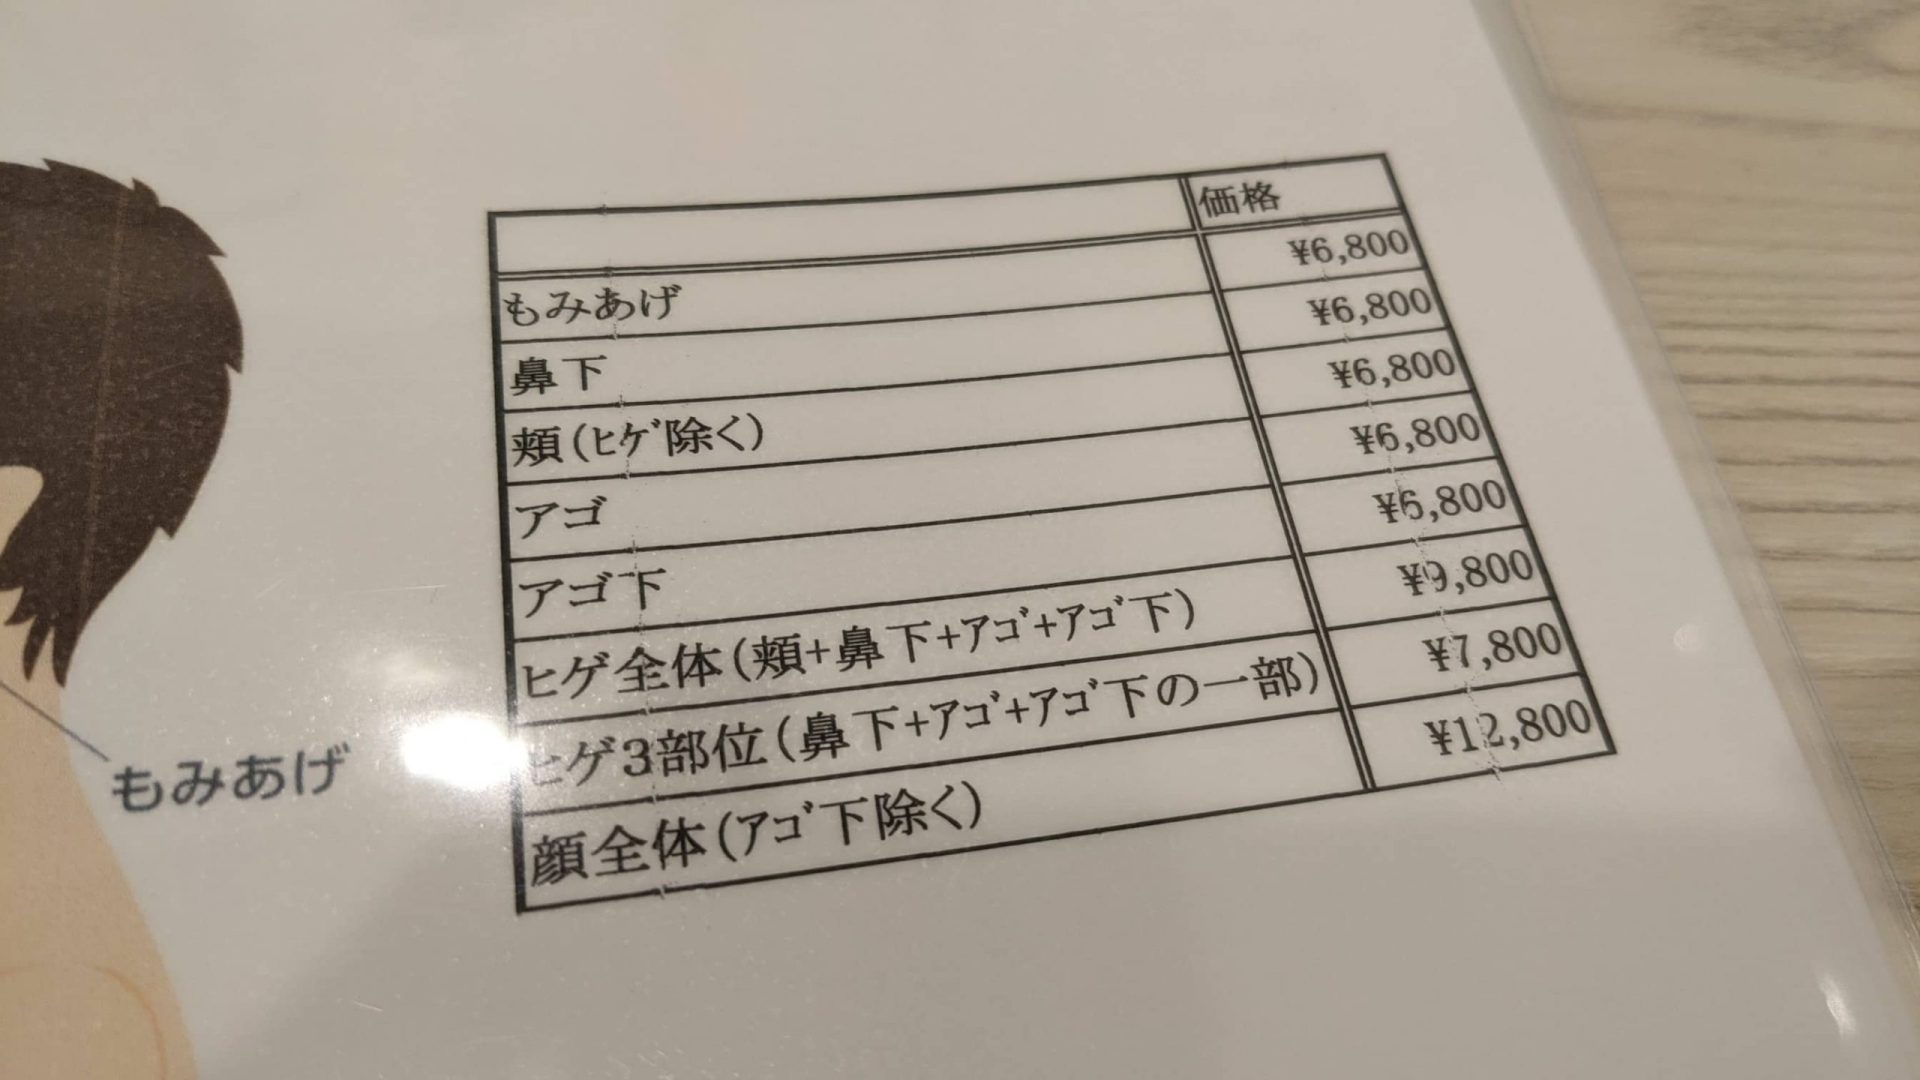 価格
もみあげ ¥6,800
鼻下 ¥6,800
頬(ﾋｹﾞ除く) ¥6,800
アゴ ¥6,800
アゴ下 ¥6,800
ヒゲ全体(頬+鼻下+ｱｺﾞ+ｱｺﾞ下) ¥9,800
ヒゲ3部位(鼻下+ｱｺﾞ+ｱｺﾞ下の一部) ¥7,800
顔全体(ｱｺﾞ下除く) ¥12,800
もみあげ